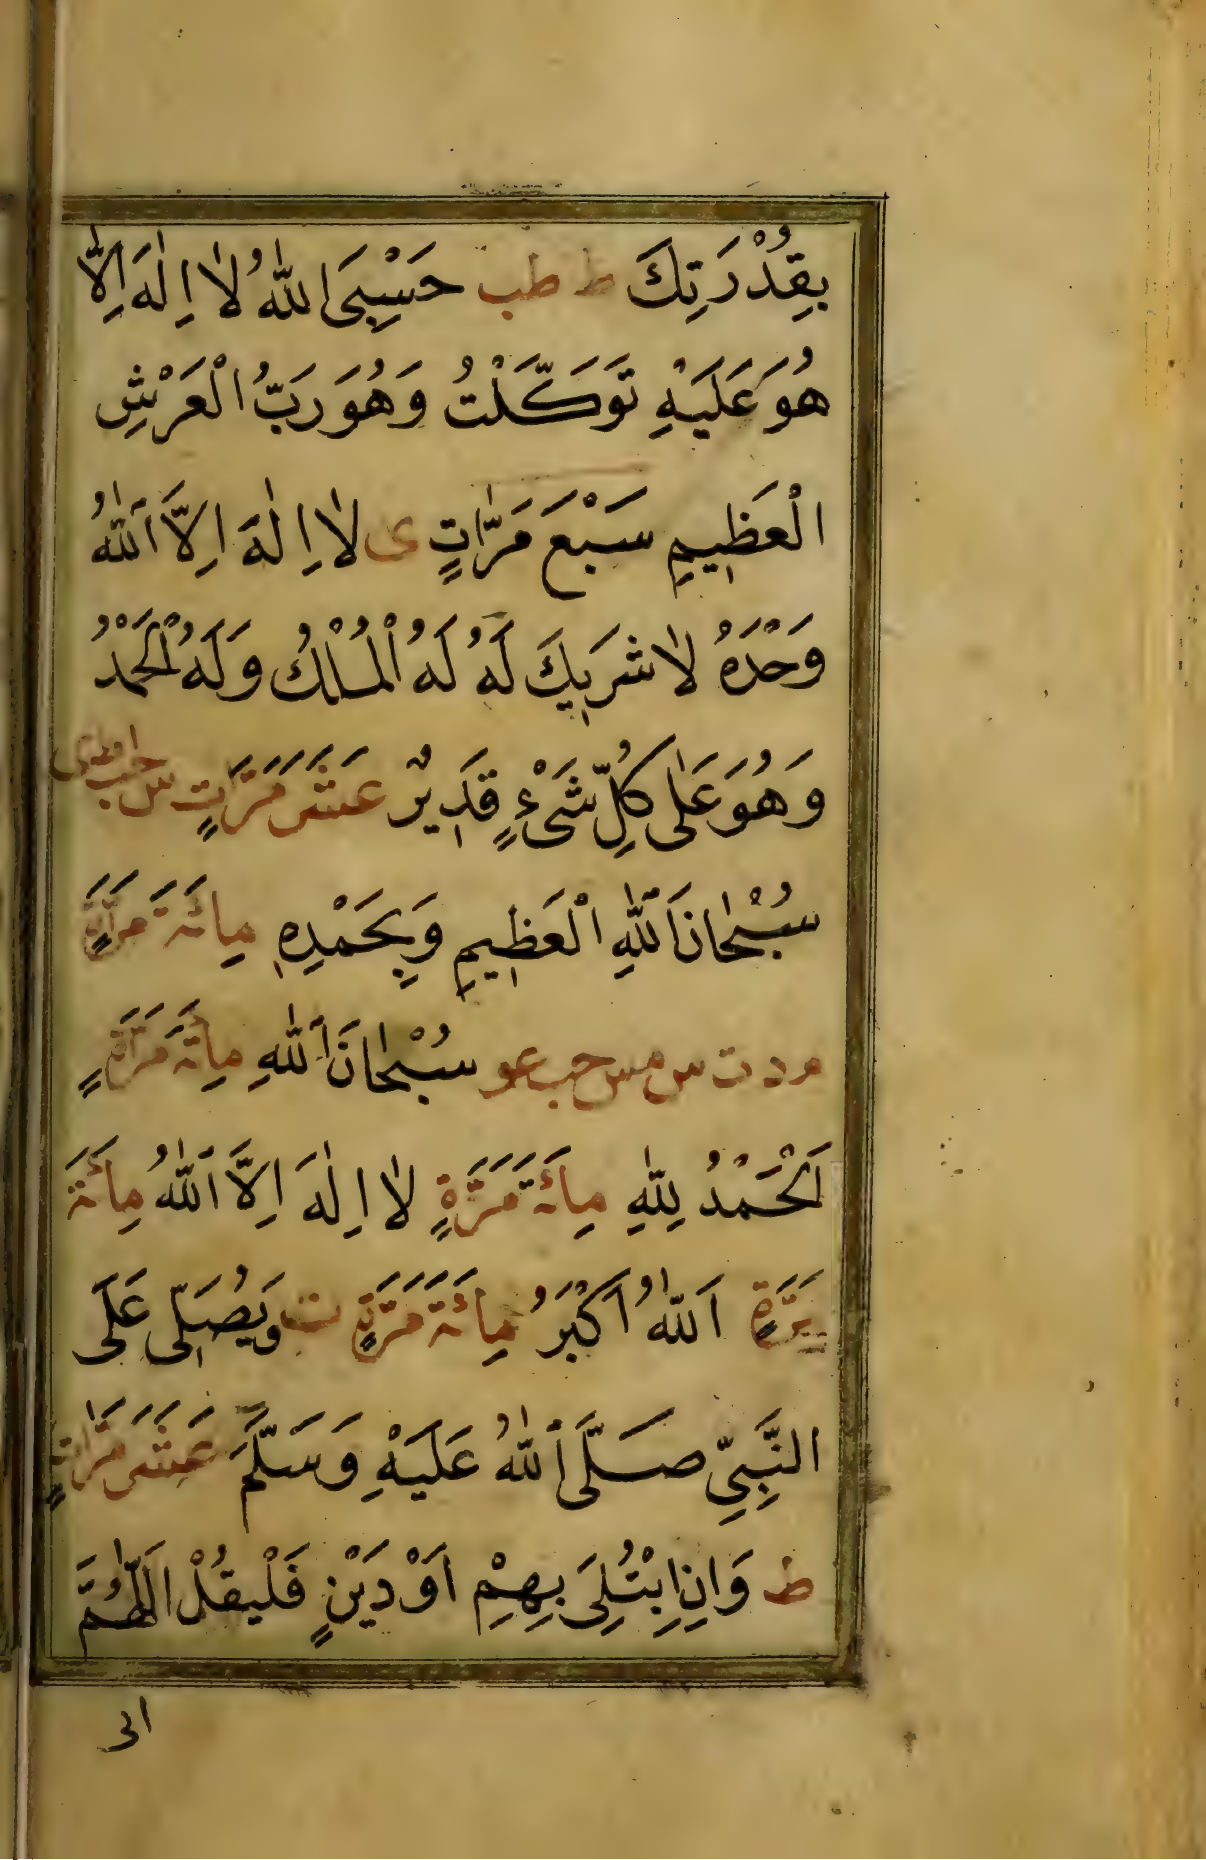 بِقُدْرَتِكَ ط طب حَسْبِىَ اللّٰهُ لَا اِلٰهَ اِلَّا
هُوَ عَلَيْهِ تَوَكَّلْتُ وَهُوَ رَبُّ الْعَرْشِ
الْعَظِيمِ سَبْعَ مَرَّاتٍ ى لَا اِلٰهَ اِلَّا اللّٰهُ
وَحْدَهُ لَا شَرِيكَ لَهُ لَهُ الْمُلْكُ وَلَهُ الْحَمْدُ
وَهُوَ عَلٰى كُلِّ شَىْءٍ قَدِيرٌ عَشَرَ مَرَّاتٍ س حب
سُبْحَانَ اللّٰهِ الْعَظِيمِ وَبِحَمْدِهِ مِائَةَ مَرَّةٍ
م د ت س مس حب عو سُبْحَانَ اللّٰهِ مِائَةَ مَرَّةٍ
اَلْحَمْدُ لِلّٰهِ مِائَةَ مَرَّةٍ لَا اِلٰهَ اِلَّا اللّٰهُ مِائَةَ
مَرَّةٍ اَللّٰهُ اَكْبَرُ مِائَةَ مَرَّةٍ ت وَيُصَلِّى عَلَى
النَّبِىِّ صَلَّى اللّٰهُ عَلَيْهِ وَسَلَّمَ عَشَرَ مَرَّاتٍ
ط وَاِنِ ابْتُلِىَ بِهِمٍّ اَوْ دَيْنٍ فَلْيَقُلْ اَللّٰهُمَّ
انى